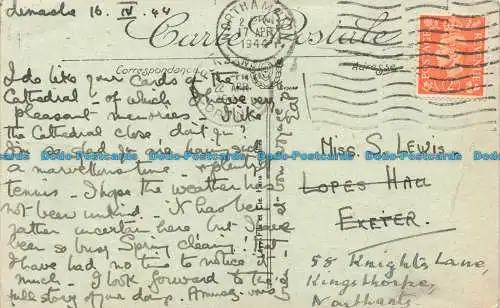 Dimanche 16. IV. 44
Carte Postale
Correspondance
Adresse
NORTHAMPTON
17 APR
1944
POSTAGE
I do like your cards of the
Cathedral - of which I have very
pleasant memories - I like
the Cathedral close don't you?
I'm so glad you are having such
a marvellous time - & plenty of
tennis - I hope the weather has
not been unkind - it has been
rather uncertain here, but I have
been so busy Spring cleaning that
I have had no time to notice it
much. I look forward to the
full story of your doings.
Miss S. Lewis
Lopes Hall
Exeter.
58 Knight's Lane,
Kingsthorpe,
Northants.
Dodo-Postcards Dodo-Postcards Dodo-Postcards Dodo-Postcards